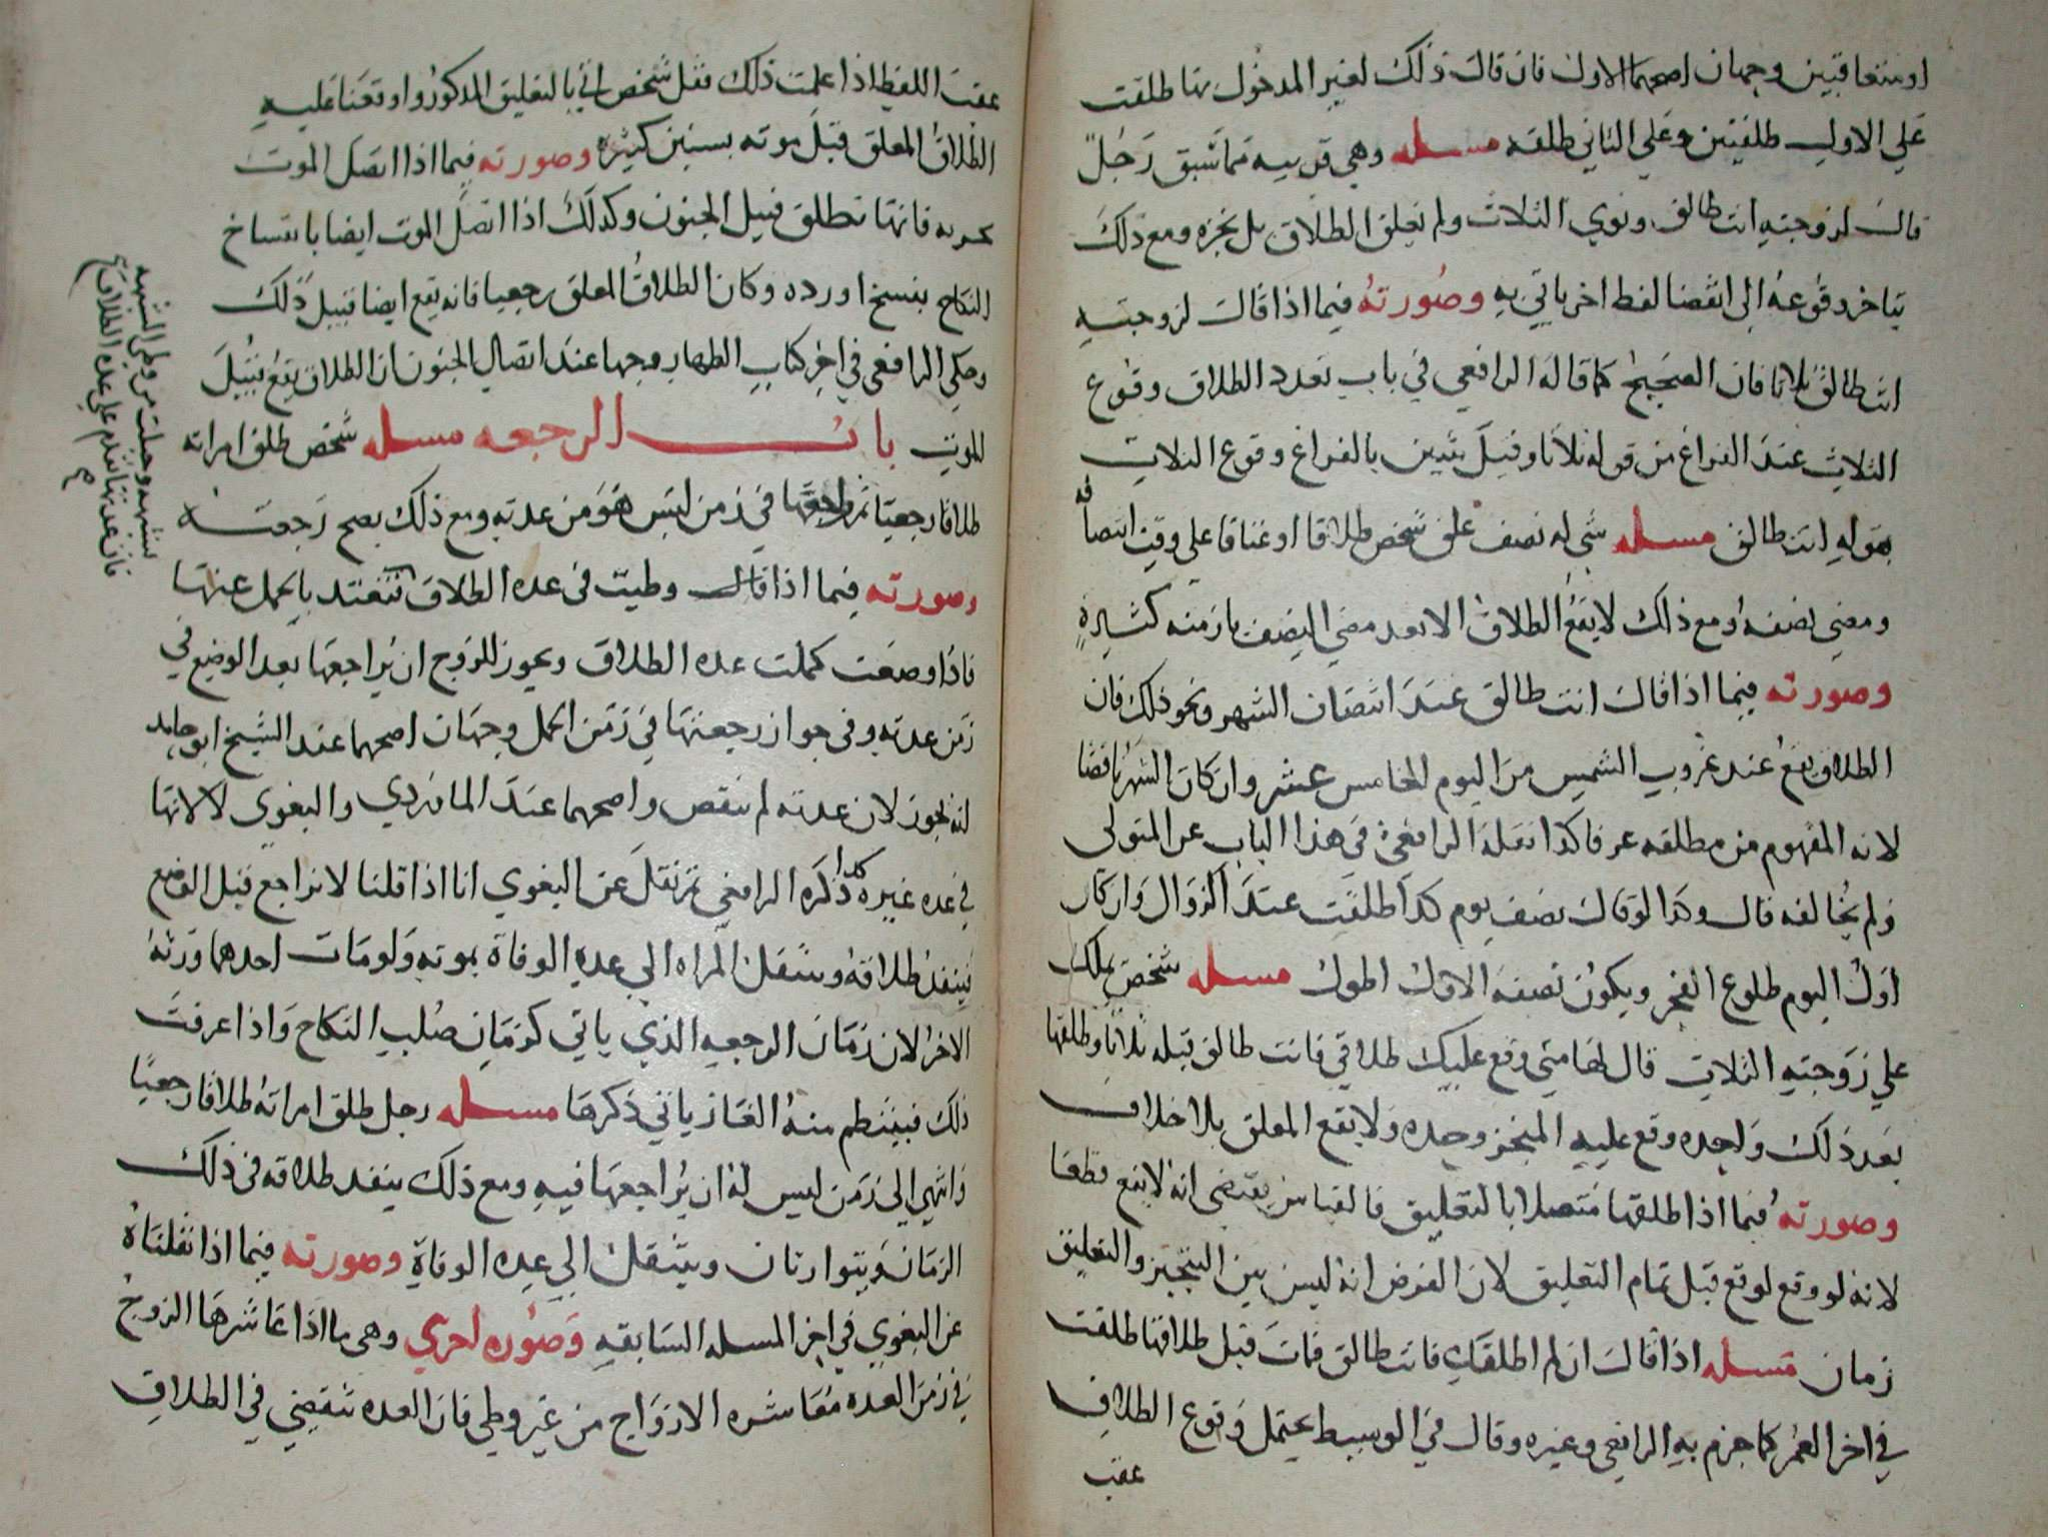 او متعاقبين وجهان اصحهما الاول فان قال ذلك لغير المدخول بها طلقت
على الاول طلقتين وعلى الثاني طلقه مسله وهي قريبه مما سبق رجل
قال لزوجته انت طالق ونوي الثلاث ولم يعلق الطلاق بل نجزه ومع ذلك
يتاخر وقوعه الى انقضا لفظ اخر ياتي به وصورته فيما اذا قال لزوجته
انت طالق ثلاثا فان الصحيح كما قاله الرافعي في باب تعدد الطلاق وقوع
الثلاث عند الفراغ من قوله ثلاثا وقيل يتبين بالفراغ وقوع الثلاث
بقوله انت طالق مسله شي له نصف علق شخص طلاقا او عتاقا على وقت انتصافه
ومضي نصفه ومع ذلك لا يقع الطلاق الا بعد مضي النصف بازمنه كثيرة
وصورته فيما اذا قال انت طالق عند انتصاف الشهر ونحو ذلك فان
الطلاق يقع عند غروب الشمس من اليوم الخامس عشر وان كان الشهر ناقصا
لانه المفهوم من مطلقه عرفا كذا نقله الرافعي في هذا الباب عن المتولي
ولم يخالفه قال وكذا لو قال نصف يوم كذا طلقت عند الزوال وان كان
اول اليوم طلوع الفجر ويكون نصفه الاول اطول مسله شخص يملك
علي زوجته الثلاث قال لها متي وقع عليك طلاقي فانت طالق قبله ثلاثا وطلقها
بعد ذلك واحده وقع عليه المنجز وحده ولا يقع المعلق بلا خلاف
وصورته فيما اذا طلقها متصلا بالتعليق فالقياس يقتضي انه لا يقع قطعا
لانه لو وقع لوقع قبل تمام التعليق لان الفرض انه ليس بين التنجيز والتعليق
زمان مسله اذا قال ان لم اطلقك فانت طالق فمات قبل طلاقها طلقت
في اخر العمر كما جزم به الرافعي وغيره وقال في الوسيط يحتمل وقوع الطلاق
عقب
عقب اللفظ اذا علمت ذلك فقل شخص اتي بالتعليق المذكور واوقعنا عليه
الطلاق المعلق قبل موته بسنين كثيره وصورته فيما اذا اتصل الموت
بجنونه فانها تطلق قبيل الجنون وكذلك اذا اتصل الموت ايضا بانفساخ
النكاح بفسخ او رده وكان الطلاق المعلق رجعيا فانه يقع ايضا قبيل ذلك
وحكي الرافعي في اخر كتاب الظهار وجها عند اتصال الجنون ان الطلاق يقع قبيل
الموت باب الرجعه مسله شخص طلق امراته
طلاقا رجعيا ثم راجعها في زمن ليس هو من عدته ومع ذلك يصح رجعته
وصورته فيما اذا قال وطيت في عده الطلاق فتعتد بالحمل عنها
فاذا وضعت كملت عده الطلاق ويجوز للزوج ان يراجعها بعد الوضع في
زمن عدته وفي جواز رجعتها في زمن الحمل وجهان اصحهما عند الشيخ ابو حامد
انه يجوز لان عدته لم تنقض واصحهما عند الماوردي والبغوي لا لانها
في عده غيره كذا ذكره الرافعي ثم نقل عن البغوي انا اذا قلنا لا نراجع قبل الوضع
فينفذ طلاقه وتنتقل المراه الي عده الوفاة بموته ولو مات احدهما ورثه
الاخر لان زمان الرجعيه الذي ياتي كزمان صلب النكاح واذا عرفت
ذلك فينتظم منه الغاز ياتي ذكرها مسله رجل طلق امراته طلاقا رجعيا
وانتهي الي زمن ليس له ان يراجعها فيه ومع ذلك ينفذ طلاقه في ذلك
الزمان ويتوارثان وينتقل الي عده الوفاة وصورته فيما اذا نقلناه
عن البغوي في اخر المسله السابقه وصوره اخري وهي ما اذا عاشرها الزوج
في زمن العده معاشره الازواج من غير وطي فان العده تنقضي في الطلاق
بشبهه وحبلت من وطي الشبهه
فان عدتها تقدم علي عده الطلاق